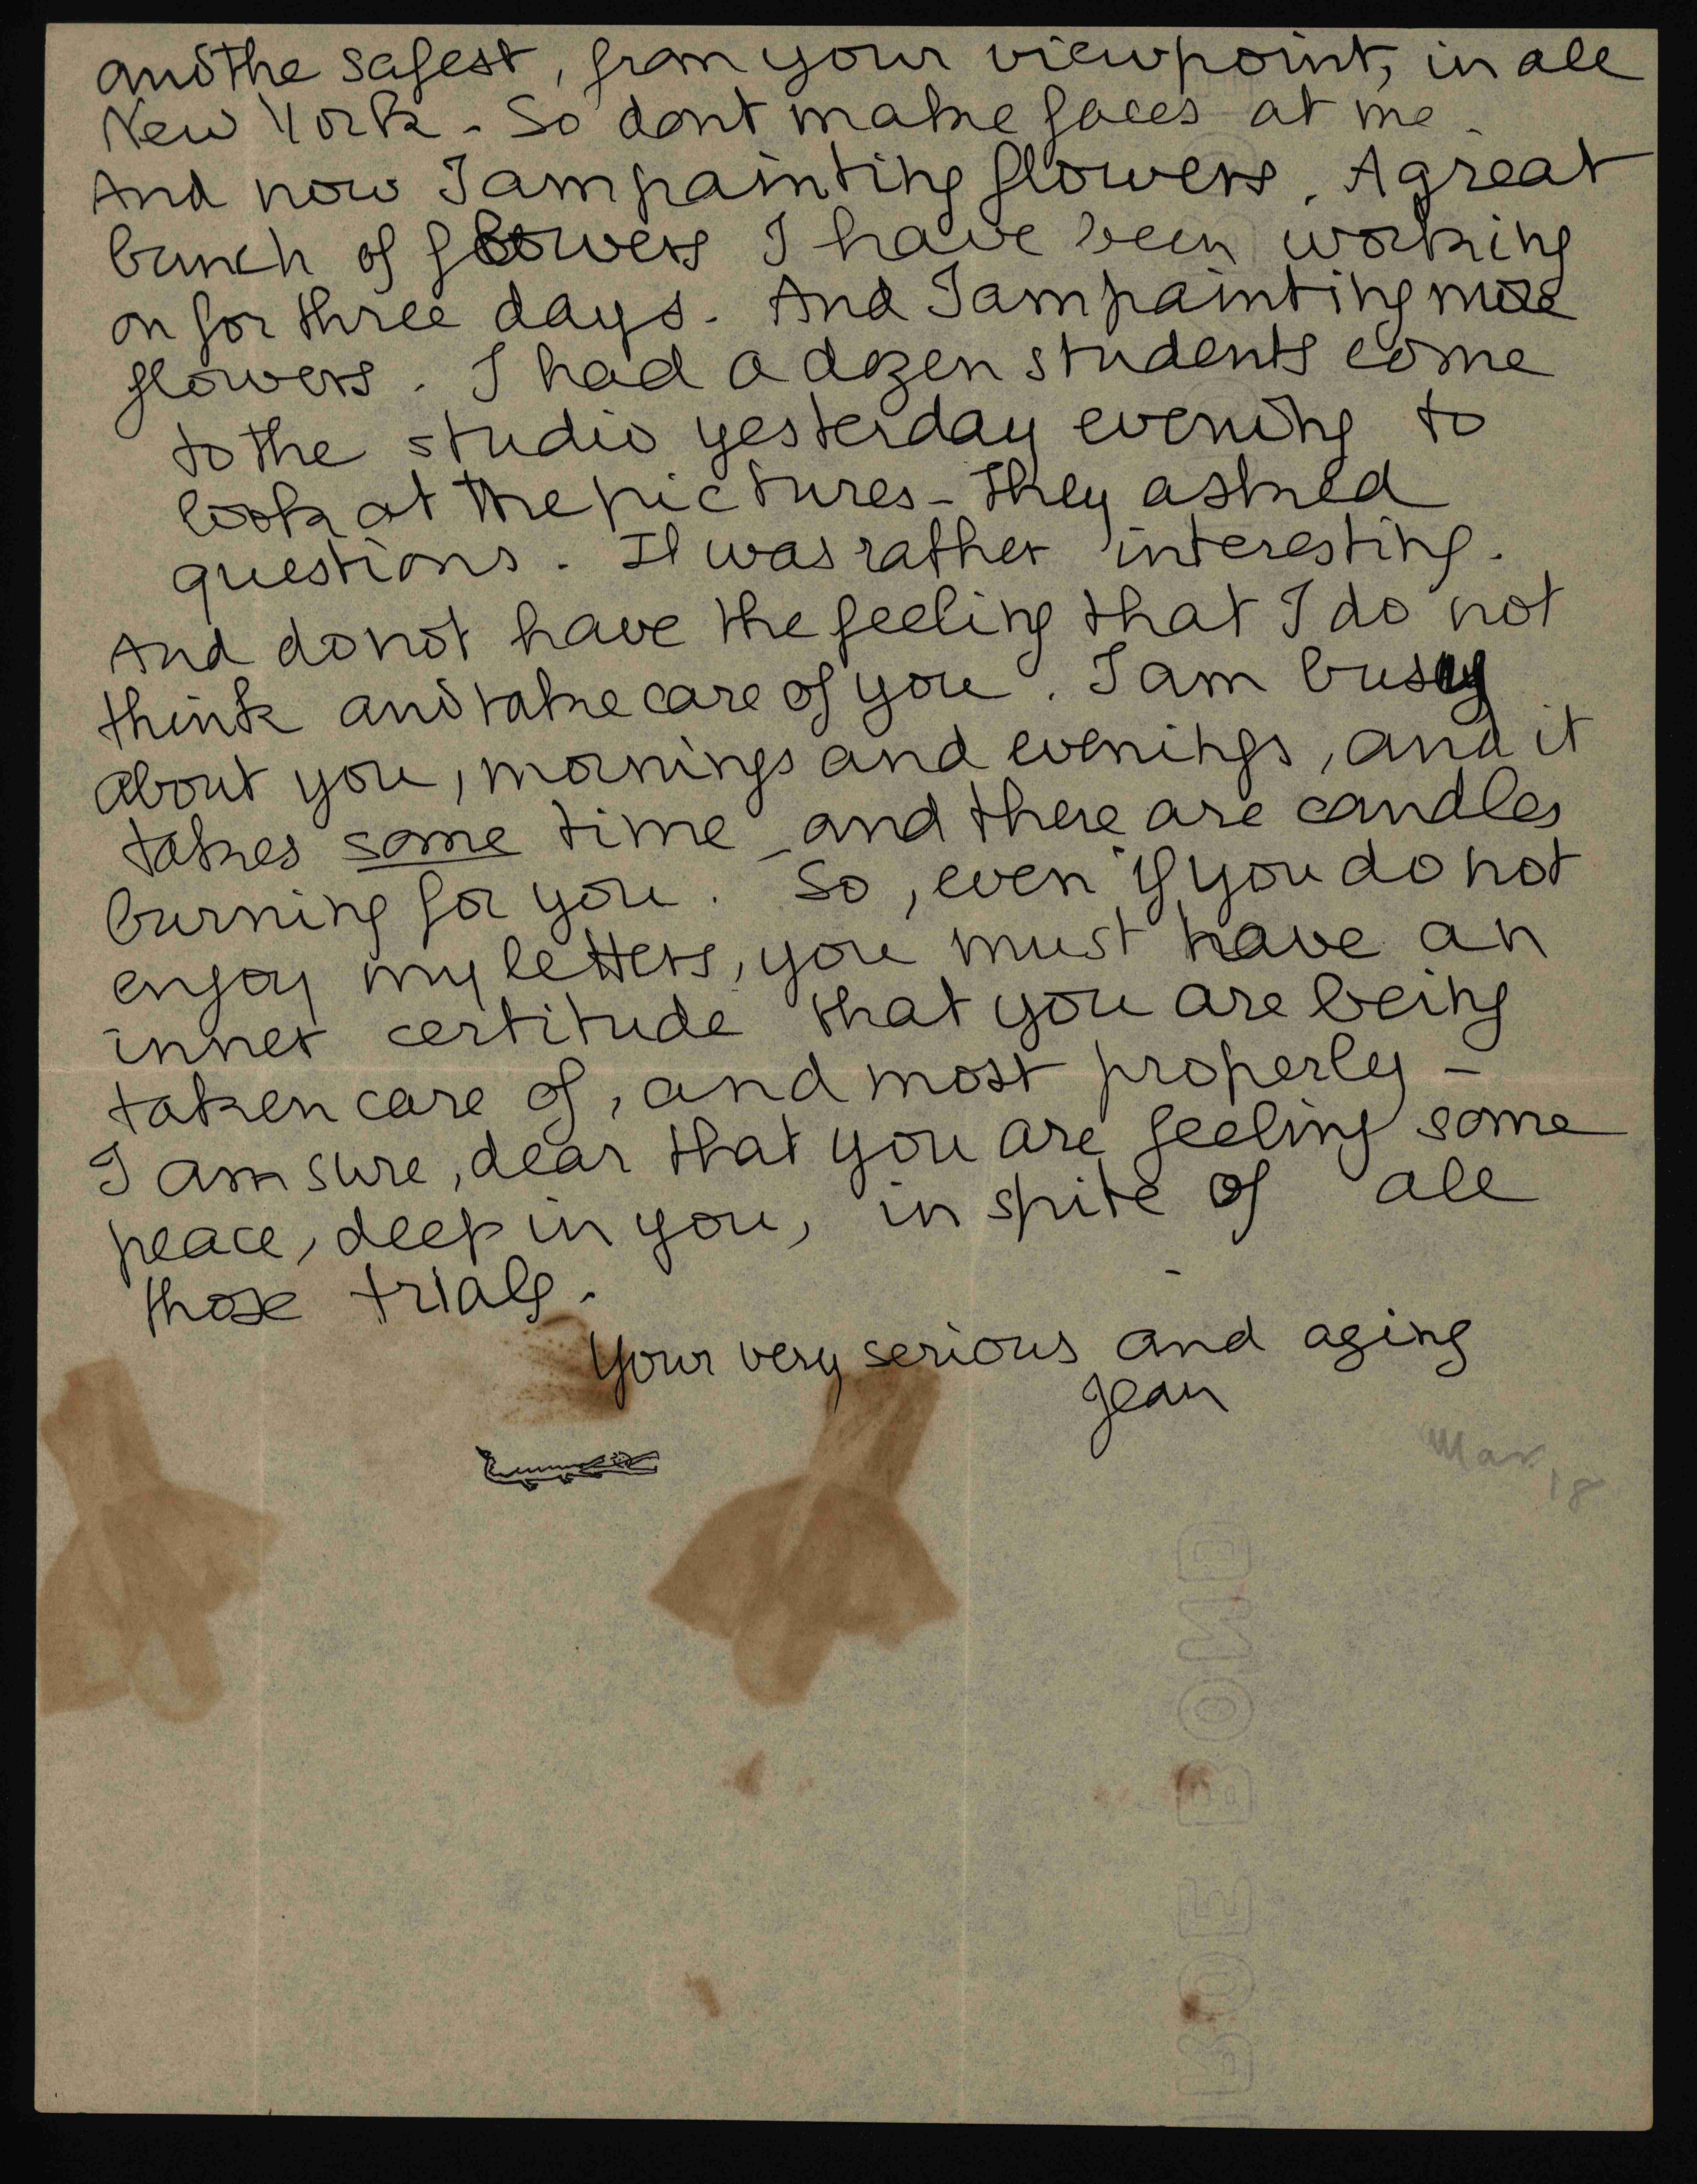 and the safest, from your viewpoint, in all
New York - So dont make faces at me.
And now I am painting flowers. A great
bunch of flowers I have been working
on for three days. And I am painting more
flowers. I had a dozen students come
to the studio yesterday evening to
look at the pictures - They asked
questions. It was rather interesting.
And do not have the feeling that I do not
think and take care of you. I am busy
about you, mornings and evenings, and it
takes some time - and there are candles
burning for you. So, even if you do not
enjoy my letters, you must have an
inner certitude that you are being
taken care of, and most properly -
I am sure, dear that you are feeling some
peace, deep in you, in spite of all
those trials.
Your very serious and aging
Jean
Mar 18